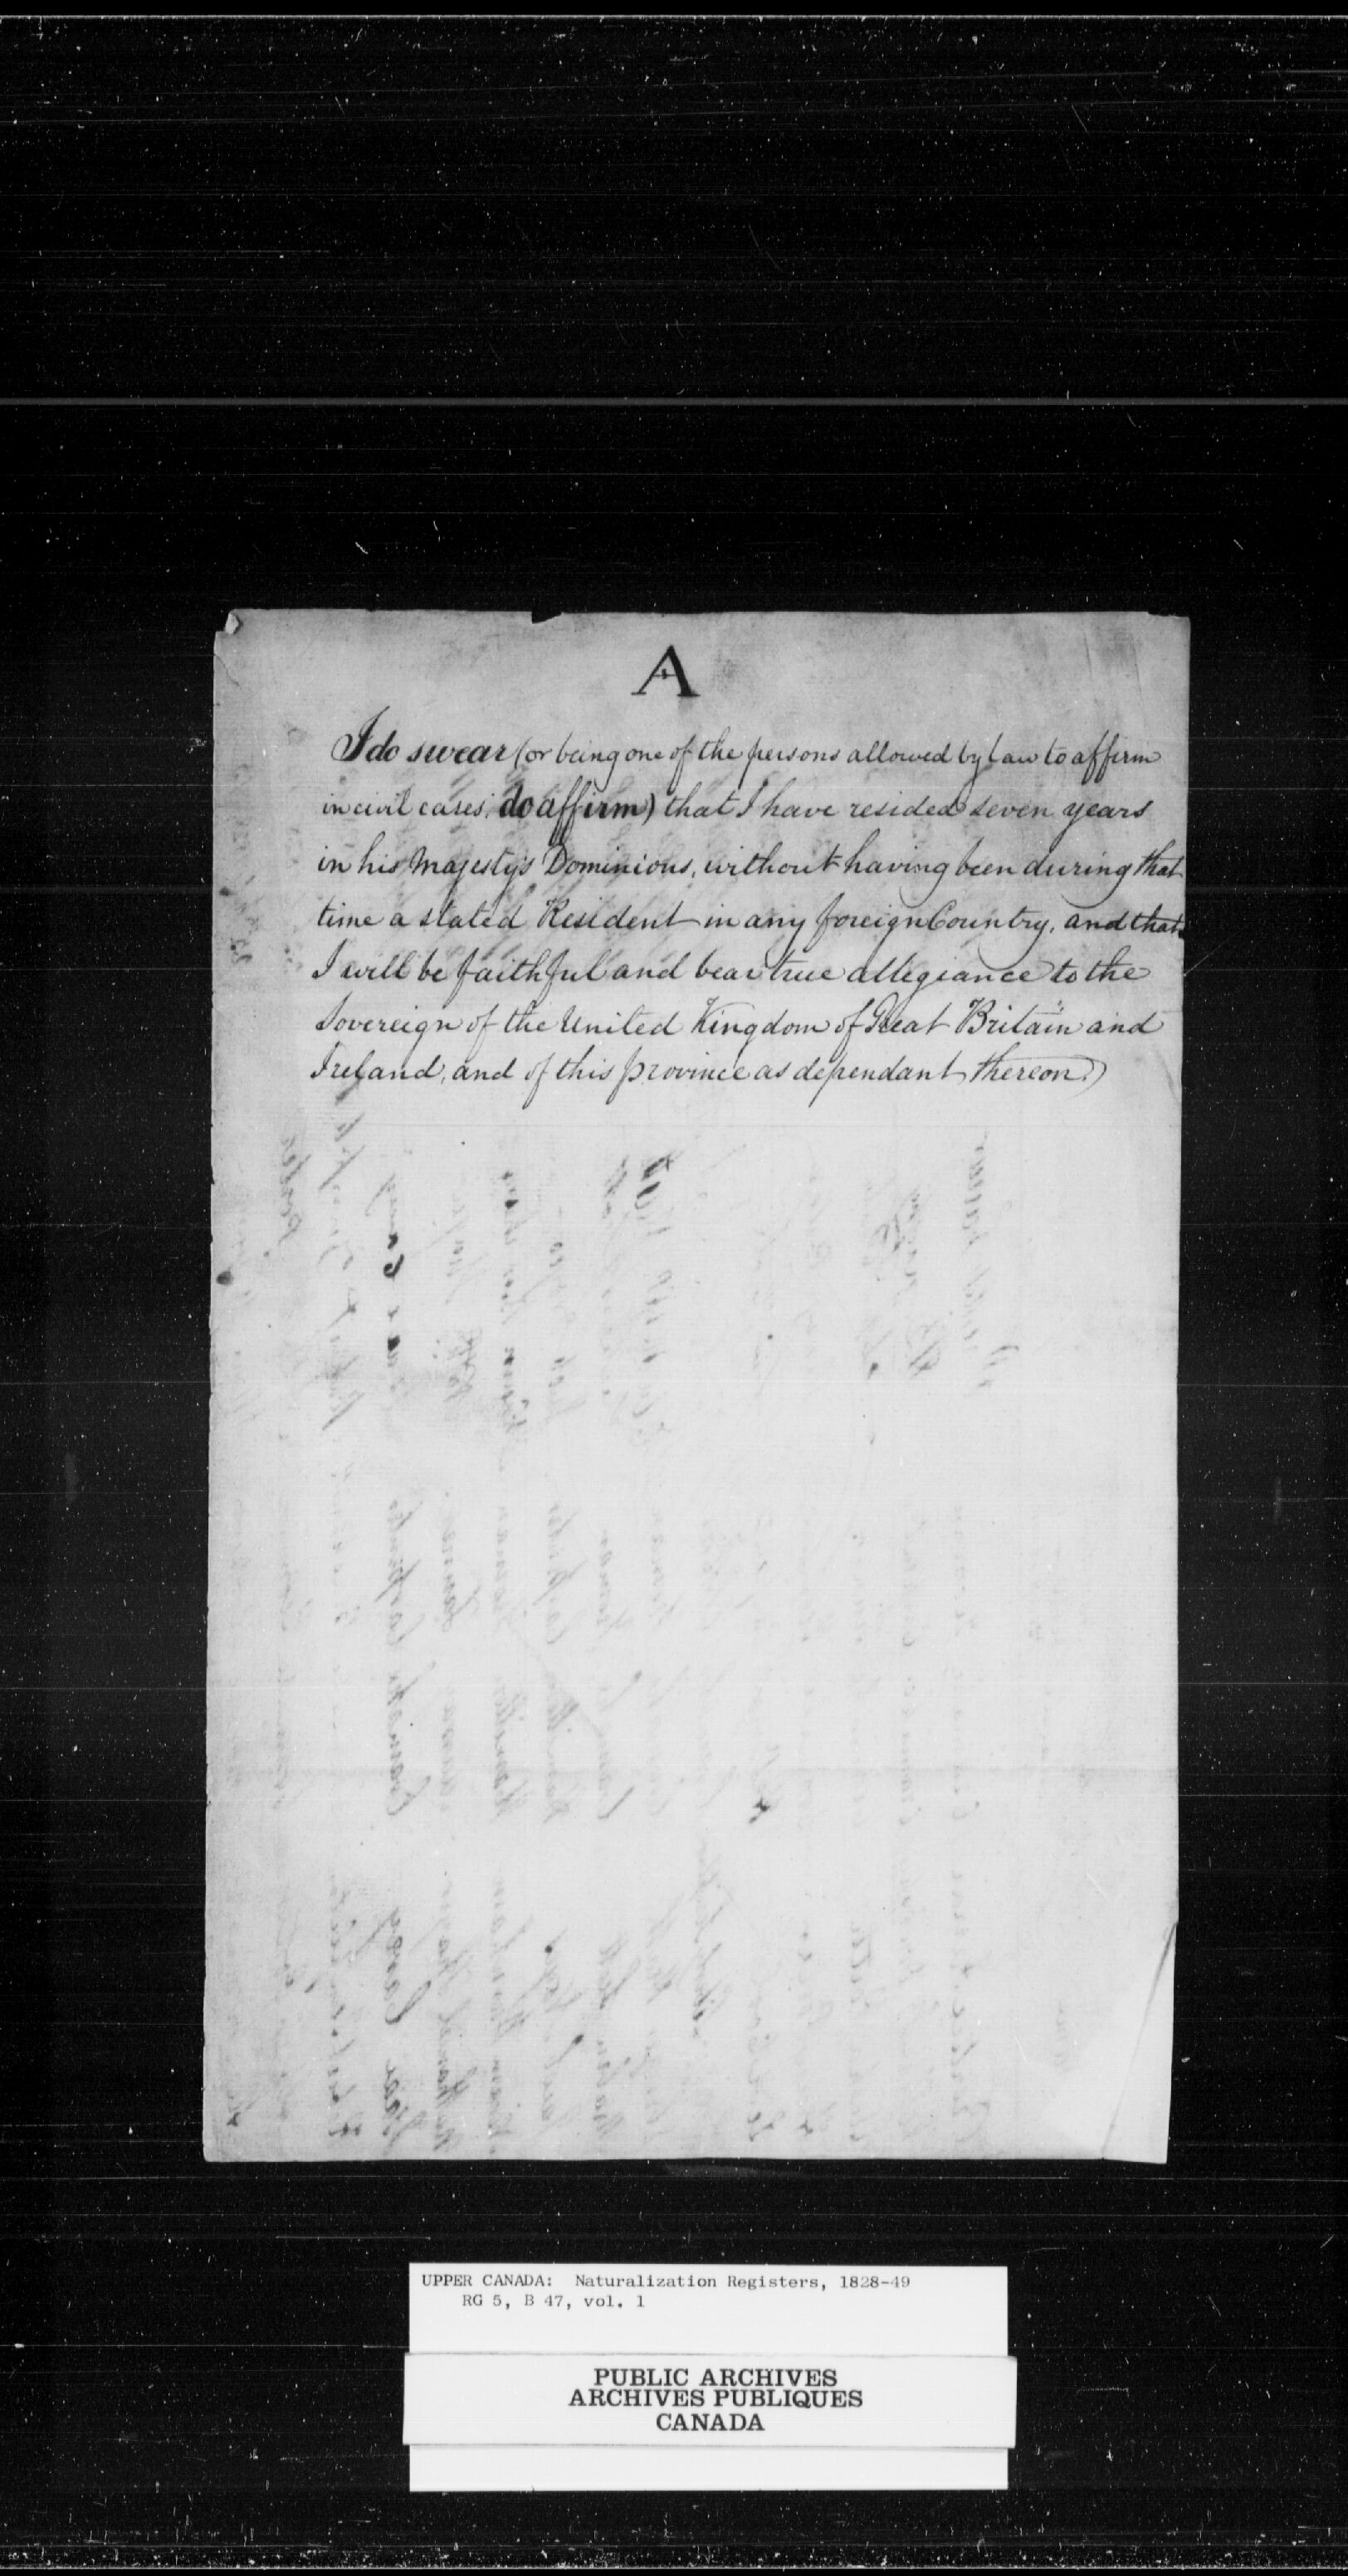 A
I do swear (or being one of the persons allowed by law to affirm
in civil cases, do affirm) that I have resided seven years
in his Majesty's Dominions, without having been during that
time a stated Resident in any foreign Country, and that
I will be faithful and bear true allegiance to the
Sovereign of the United Kingdom of Great Britain and
Ireland, and of this province as dependant thereon.)
UPPER CANADA: Naturalization Registers, 1828-49
RG 5, B 47, vol. 1
PUBLIC ARCHIVES
ARCHIVES PUBLIQUES
CANADA